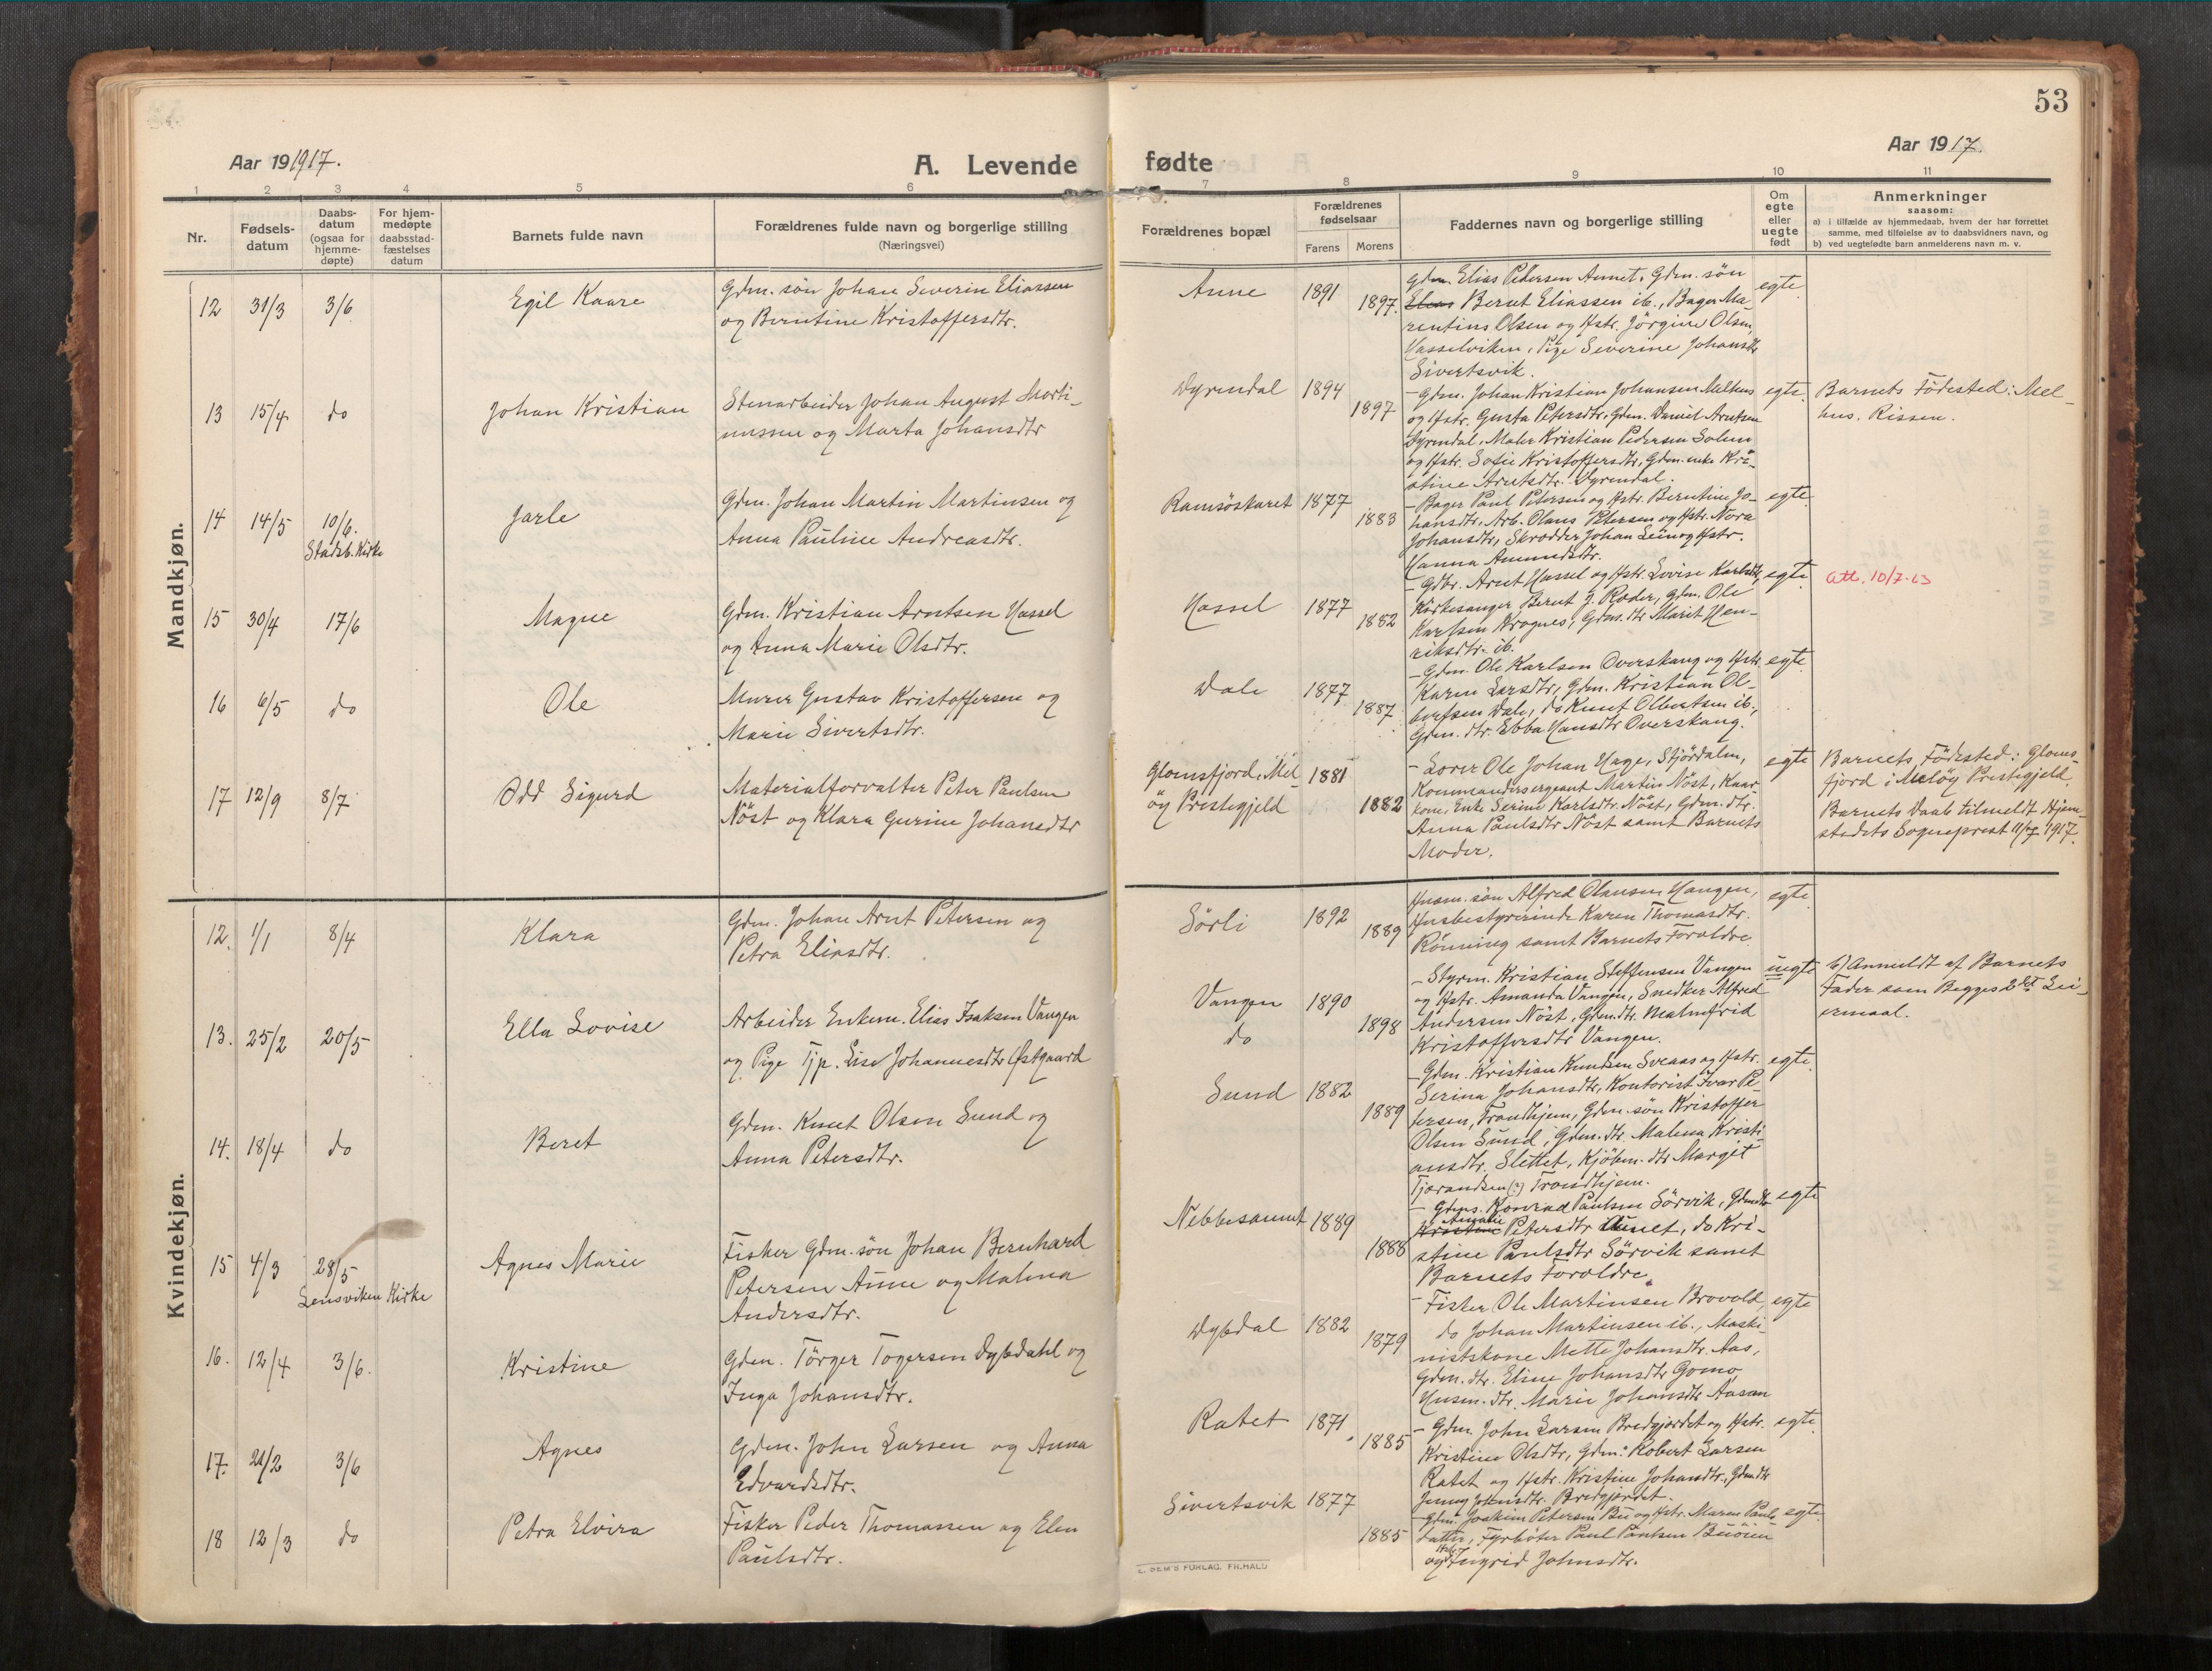 53
Aar 191917.
A. Levende fødte
Aar 1917.
1 2 3 4 5 6 7 8 9 10 11
Nr.
Fødsels-
datum
Daabs-
datum
(ogsaa for
hjemme-
døpte)
For hjem-
medøpte
daabsstad-
fæstelses
datum
Barnets fulde navn
Forældrenes fulde navn og borgerlige stilling
(Næringsvei)
Forældrenes bopæl
Forældrenes
fødselsaar
Farens Morens
Faddernes navn og borgerlige stilling
Om
egte
eller
uegte
født
Anmerkninger
saasom:
a) i tilfælde av hjemmedaab, hvem der har forrettet
samme, med tilføielse av to daabsvidners navn, og
b) ved uegtefødte barn anmelderens navn m. v.
Mandkjøn.
12 31/3 3/6 Egil Kaare
Gdm. søn Johan Severin Eliassen
og Berntine Kristoffersdtr.
Anne 1891 1897.
Gdm. Elias Pedersen Annet, Gdm. søn
Elias Bernt Eliassen ib., Bager Ma-
rentius Olsen og Hstr. Jörgine Olsen,
Hasselviken, Pige Severine Johansdtr
Sivertsvik.
egte
13 15/4 do Johan Kristian
Stenarbeider Johan August Marti-
nussen og Marta Johansdtr
Dyrendal 1894 1897
- Gdm. Johan Kristian Johansen Melhus
og Hstr. Gusta Petersdtr, Gdm. Daniel Arntsen
Dyrendal, Maler Kristian Pedersen Solem
og Hstr. Sofie Kristoffersdtr, Gdm. enke Kri-
stine Arntsdtr. Dyrendal.
egte.
Barnets Födested: Mel-
hus. Rissen.
14 14/5 10/6.
Stadsb. Kirke
Jarle
Gdm. Johan Martin Martinsen og
Anna Pauline Andreasdtr.
Ramsöskaret 1877 1883
- Bager Paul Petersen og Hstr. Berntine Jo-
hansdtr, Arb. Olaus Petersen og Hstr. Nora
Johansdtr, Skrædder Johan Lein og Hstr.
Hanna Amundsdtr.
egte
15 30/4 17/6 Magne
Gdm. Kristian Arntsen Hassel
og Anna Marie Olsdtr.
Hassel 1877 1882
- Gdbr. Arnt Hassel og Hstr. Lovise Karlsdtr,
Kirkesanger Bernt J. Röder, Gdm. Ole
Karlsen Krognes, Gdm. dtr Marit Hen-
riksdtr. ib.
egte.
Att. 10/7-63
16 6/5 do Ole
Murer Gustav Kristoffersen og
Marie Sivertsdtr.
Dale 1877 1887
- Gdm. Ole Karlsen Overskaug og Hstr.
Karen Larsdtr, Gdm. Kristian Ol-
bertsen Dale, do Knut Olbertsen ib.,
Gdm. dtr. Ebba Hansdtr Overskaug.
egte
17 12/9 8/7 Odd Sigurd
Materialforvalter Peter Paulsen
Nöst og Klara Gurine Johansdtr
Glomsfjord, Mel-
öy Prestegjeld
1881 1882
- Lærer Ole Johan Hage, Stjördalen,
Kommandersergeant Martin Nöst,
Enke Serine Karlsdtr. Nöst, Gdm. dtr.
Anna Paulsdtr Nöst samt Barnets
Moder.
egte
Barnets Födested: Gloms-
fjord i Melöy Prestegjeld.
Barnets Daab tilmeldt Hjem-
stedets Sogneprest 11/7 1917.
Kvindekjøn.
12. 1/1 8/4 Klara
Gdm. Johan Arnt Petersen og
Petra Eliasdtr.
Sörli 1892 1889
Husm. søn Alfred Olausen Hangen,
Husbestyrerinde Karen Thomasdtr.
Rönning samt Barnets Forældre.
egte
13. 25/2 20/5 Ella Lovise
Arbeider Enkem. Elias Isaksen Vangen
og Pige Tjp. Lise Johannesdtr Östgaard
Vangen
do
1890 1898
- Styrm. Kristian Steffensen Vangen
og Hstr. Amanda Vangen, Snedker Alfred
Andersen Nöst, Gdm. dtr. Malmfrid
Kristoffersdtr Vangen.
uegte
b) Anmeldt af Barnets
Fader som Begges 2det Lei-
ermaal.
14. 18/4 do Beret
Gdm. Knut Olsen Sund og
Anna Petersdtr.
Sund 1882 1889
- Gdm. Kristian Knudsen Sveaas og Hstr.
Serina Johansdtr, Kontorist Ivar Pe-
tersen, Trondhjem, Gdm. søn Kristoffer
Olsen Sund, Gdm. dtr. Malena Kristi-
ansdtr. Slettet, Kjöbm. dtr Margit
Tjærandsen (?) Trondhjem.
egte
15 4/3 28/5
Lensviken Kirke
Agnes Marie
Fisker Gdm. søn Johan Bernhard
Petersen Aune og Malena
Andersdtr.
Nebbesaunet 1889 1888
- Gdms. Konrad Paulsen Sörvik, Gdmdtr
Kristine Amalie Petersdtr Aunet, do Kri-
stine Paulsdtr Sörvik samt
Barnets Forældre.
egte
16. 12/4 3/6. Kristine
Gdm. Törger Togersen Dybdahl og
Inga Johansdtr.
Dybdal 1882 1879
- Fisker Ole Martinsen Brovold,
do Johan Martinsen ib., Maski-
nistskone Mette Johansdtr. Aas,
Gdm. dtr. Eline Johansdtr Gomo,
Husm. dtr. Marie Johansdtr Aasan
egte
17. 21/2 3/6 Agnes
Gdm. John Larsen og Anna
Edvardsdtr.
Ratet 1871 1885
- Gdm. John Larsen Bredgjerdet og Hstr.
Kristine Olsdtr, Gdm. Robert Larsen
Ratet og Hstr. Kristine Johansdtr., Gdmdtr
Jenny Johnsdtr. Bredgjerdet.
egte
18 12/3 do Petra Elvira
Fisker Peder Thomassen og Elen
Paulsdtr.
Sivertsvik 1877 1885
- Gdm. Joakim Petersen Bu og Hstr. Maren Pauls-
datter, Fyrböter Paul Paulsen Buöien
og Hstr Ingrid Johnsdtr.
egte
E. SEM'S FORLAG. FR.HALD